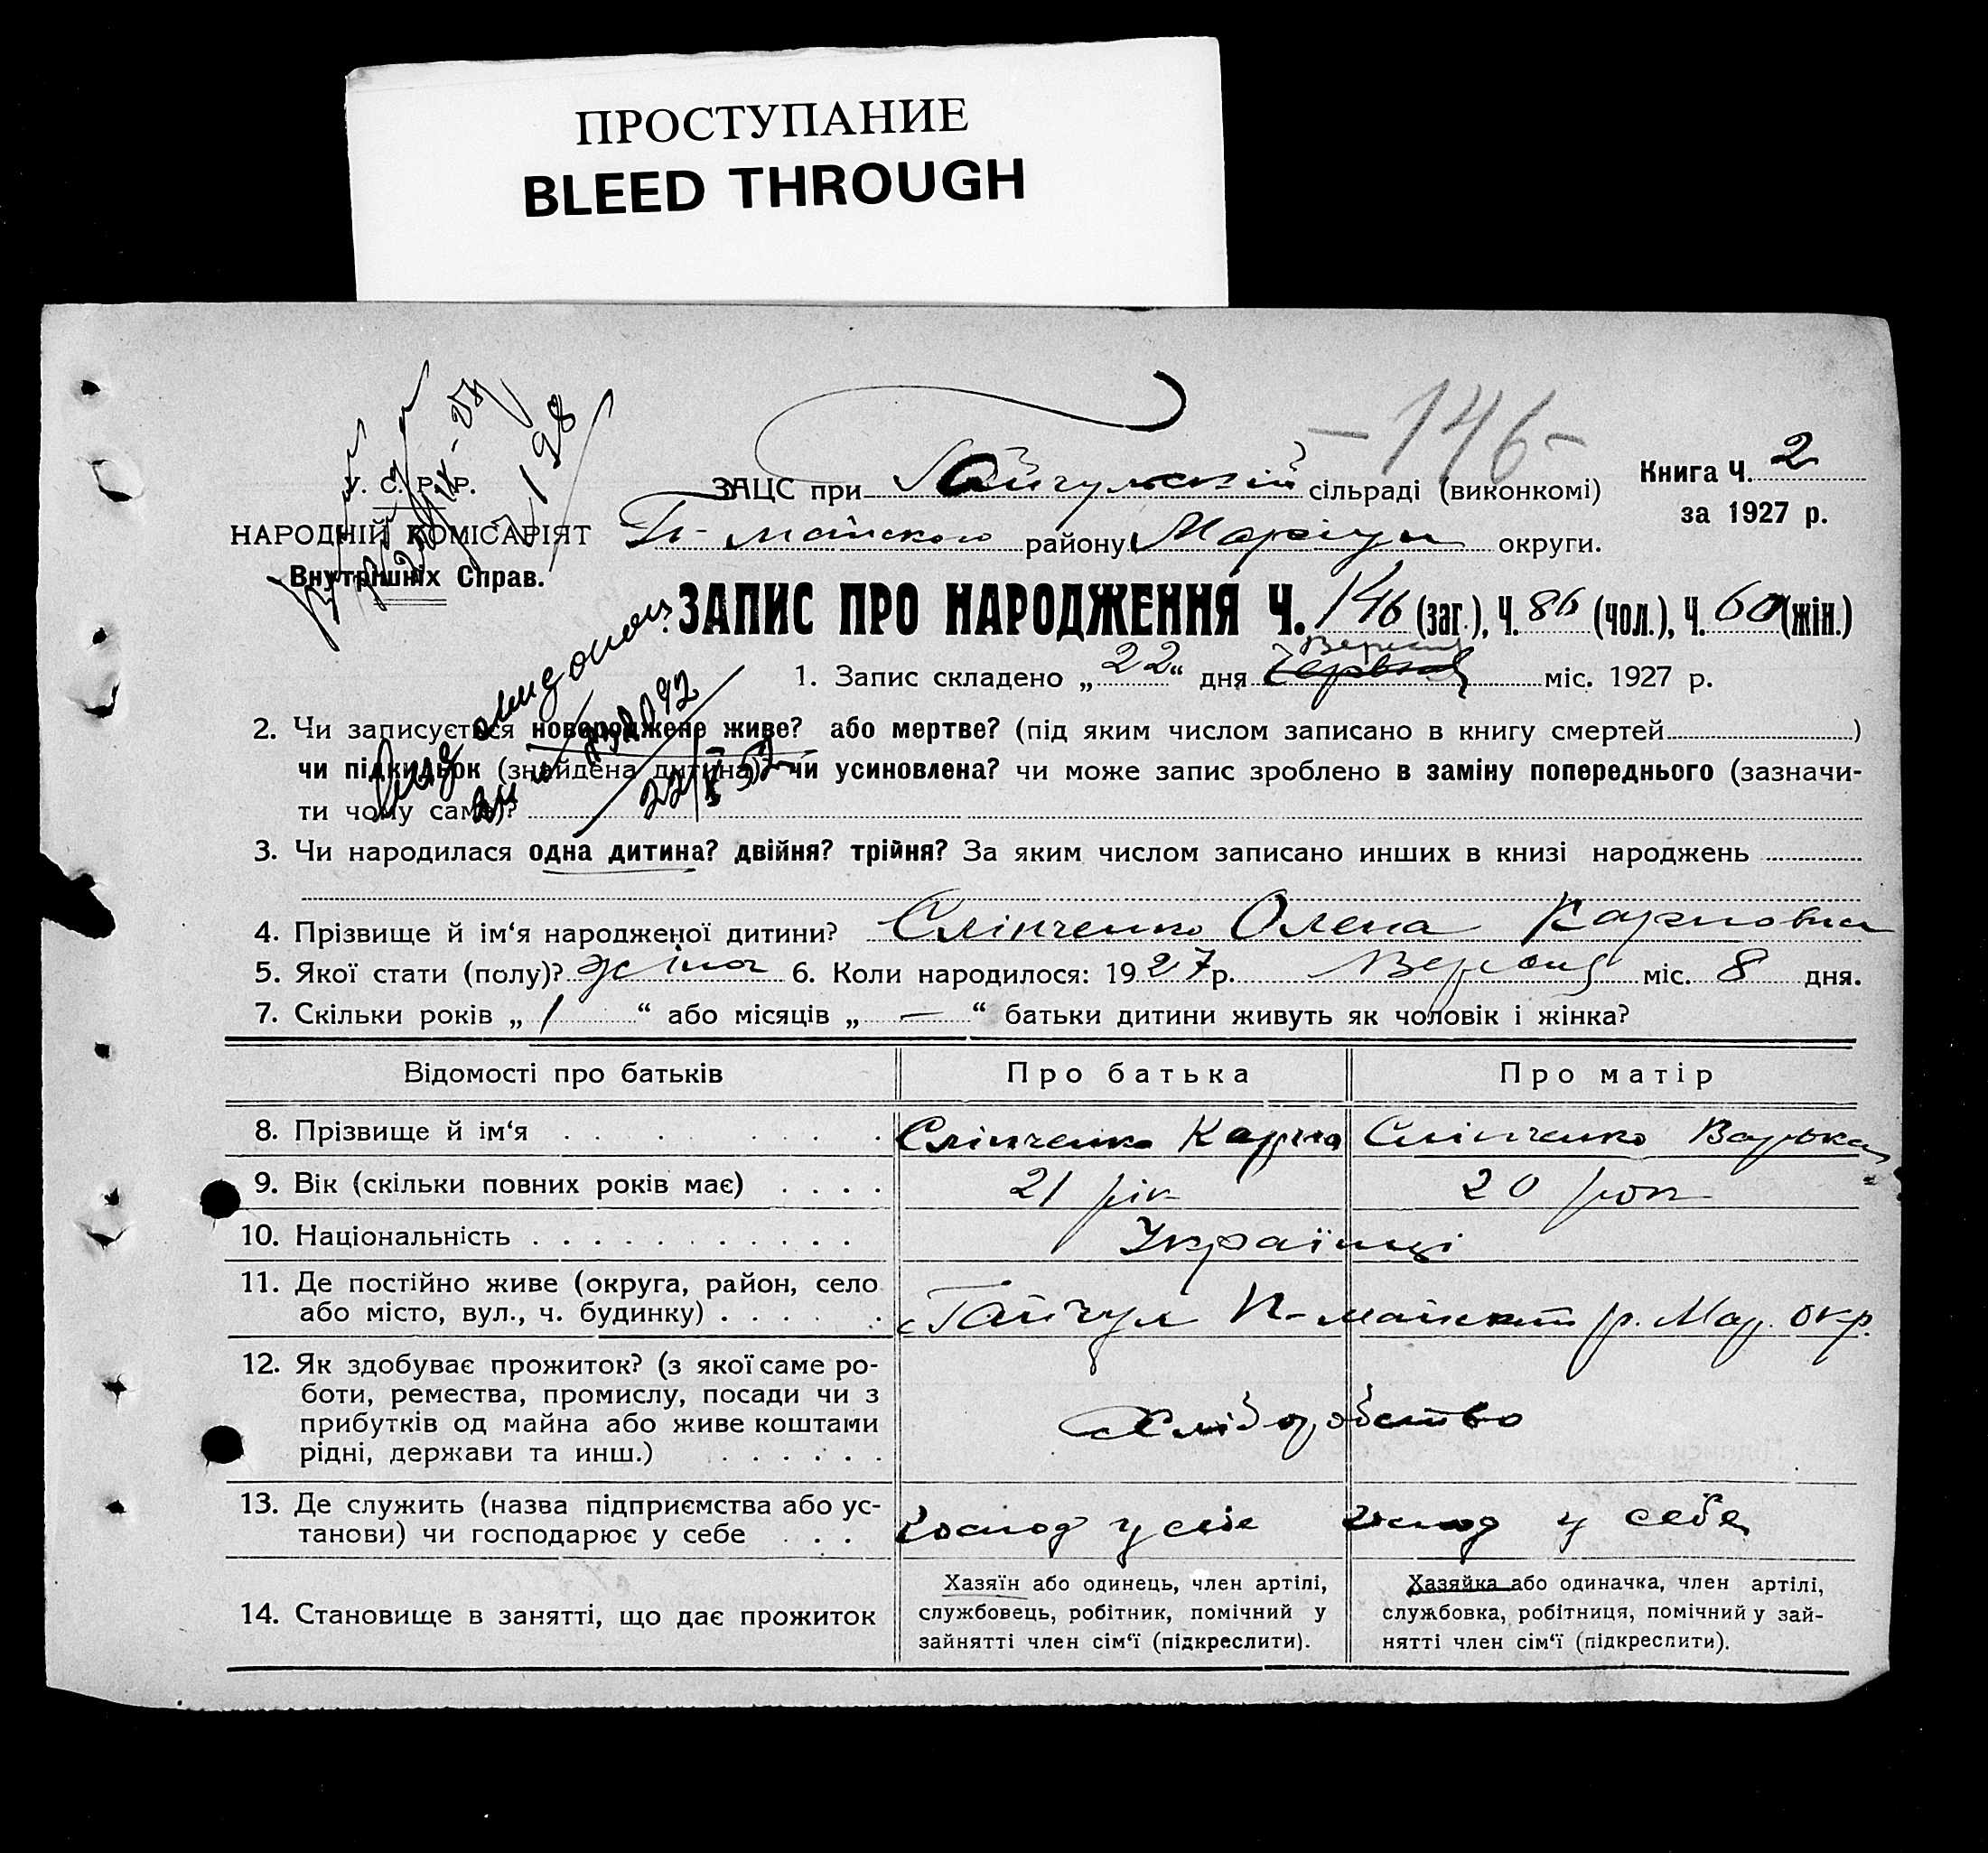 ПРОСТУПАНИЕ
BLEED THROUGH
-146-
У. С. Р. Р.
НАРОДНІЙ КОМІСАРІЯТ
Внутрішніх Справ.
ЗАЦС при Гайчульській сільраді (виконкомі)
майского району Маріуп округи.
Книга Ч. 2
за 1927 р.
ЗАПИС ПРО НАРОДЖЕННЯ Ч. 146 (заг.), Ч. 86 (чол.), Ч. 60 (жін.)
Вересня
1. Запис складено „22“ дня Червня міс. 1927 р.
2. Чи записується новороджене живе? або мертве? (під яким числом записано в книгу смертей )
чи підкидьок (знайдена дитина)? чи усиновлена? чи може запис зроблено в заміну попереднього (зазначи-
ти чому саме)?
3. Чи народилася одна дитина? двійня? трійня? За яким числом записано инших в книзі народжень
4. Прізвище й ім‘я народженої дитини? Слінченко Олена Карповна
5. Якої стати (полу)? жіноч 6. Коли народилося: 1927р. Вересня міс. 8 дня.
7. Скільки років „1“ або місяців „—“ батьки дитини живуть як чоловік і жінка?
Відомості про батьків Про батька Про матір
8. Прізвище й ім‘я Слінченко Карпо Слінченко Варька
9. Вік (скільки повних років має) 21 рік 20 рок
10. Національність Українці
11. Де постійно живе (округа, район, село
або місто, вул., ч. будинку) с Гайчул П-майский р. Мар. окр.
12. Як здобуває прожиток? (з якої саме ро-
боти, ремества, промислу, посади чи з
прибутків од майна або живе коштами
рідні, держави та инш.) Хліборобство
13. Де служить (назва підприємства або ус-
танови) чи господарює у себе господ у себе господ у себе
14. Становище в занятті, що дає прожиток
Хазяїн або одинець, член артілі,
службовець, робітник, помічний у
зайнятті член сім‘ї (підкреслити).
Хазяйка або одиначка, член артілі,
службовка, робітниця, помічний у зай-
нятті член сім‘ї (підкреслити).